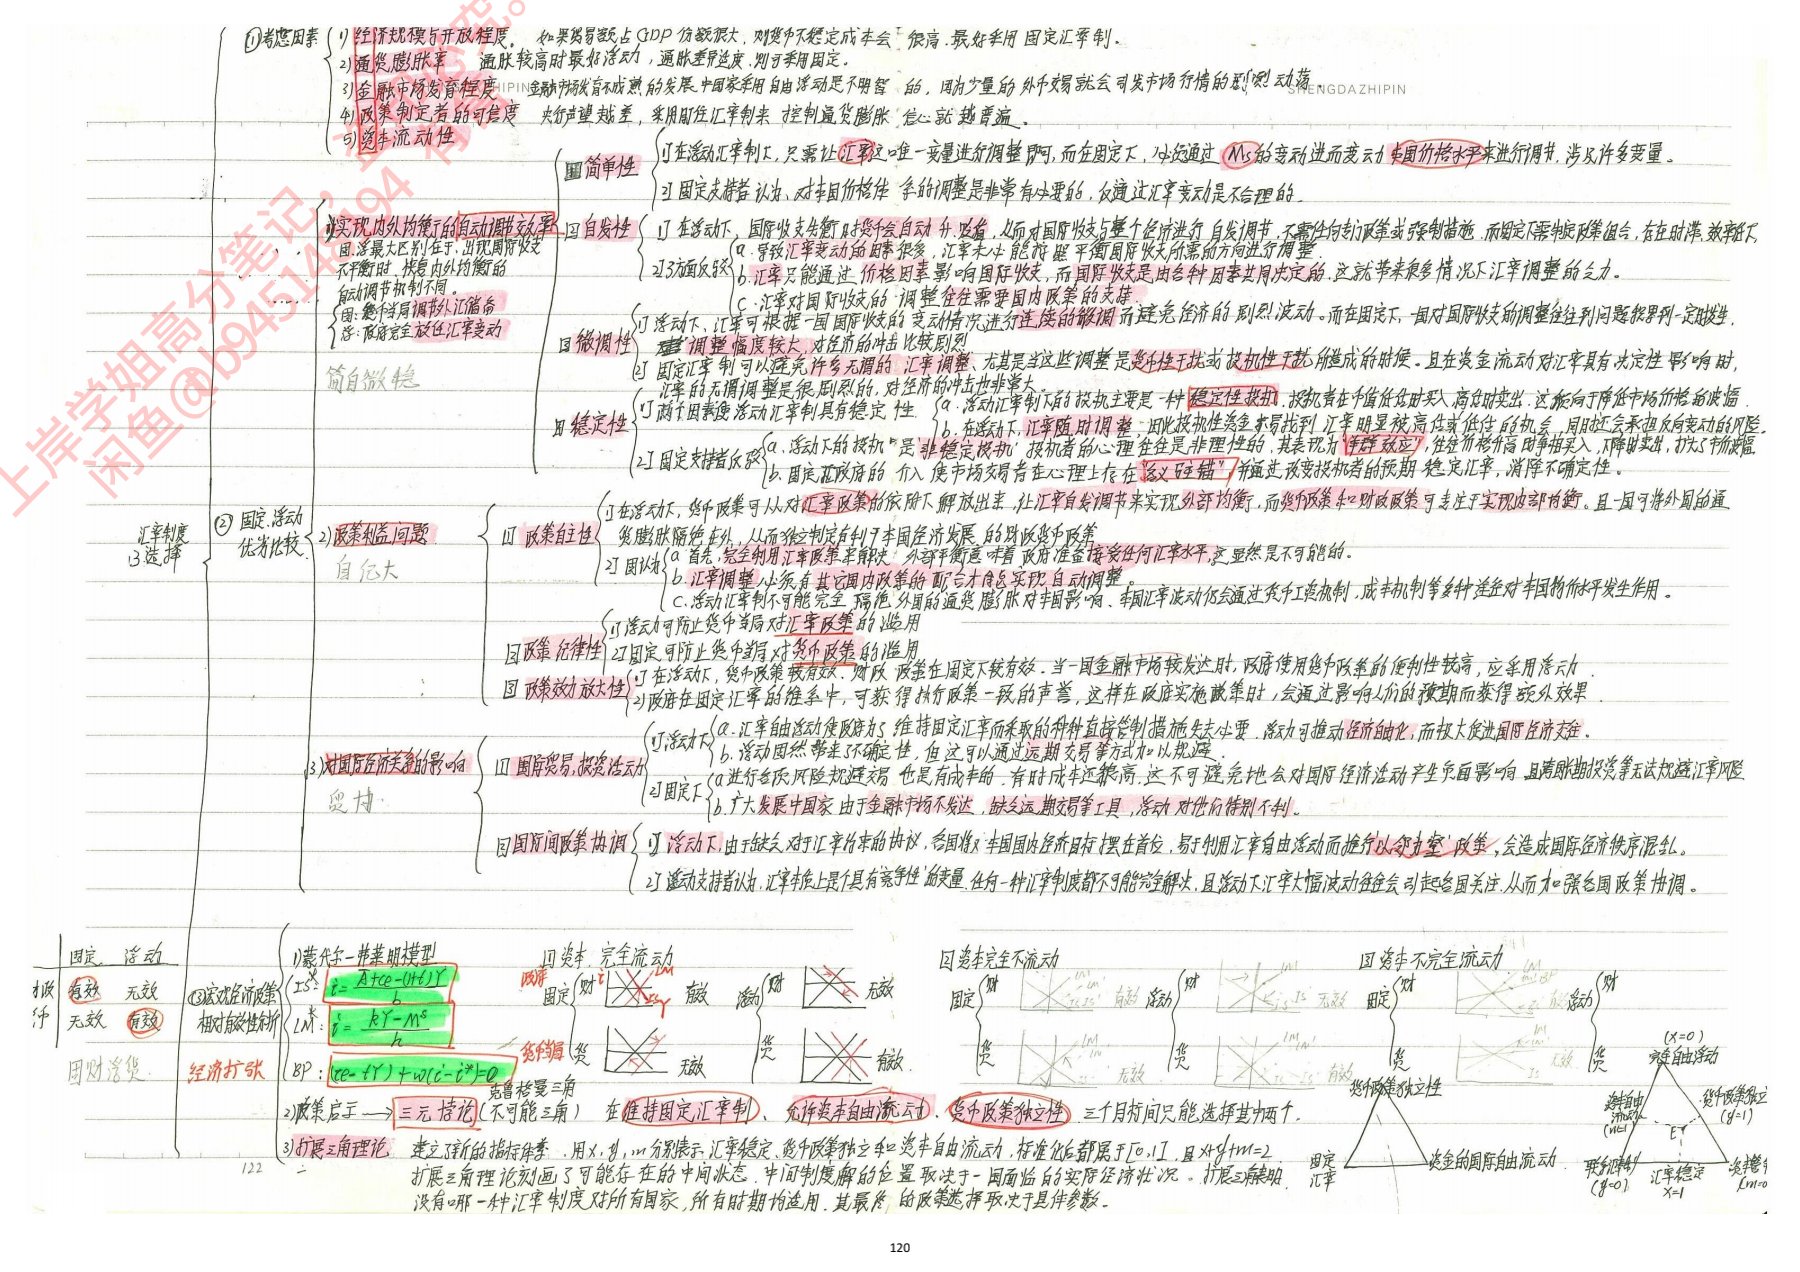 ①考虑因素
1) 经济规模与开放程度。 如果贸易额占GDP份额很大，则货币不稳定成本会很高.最好采用固定汇率制.
2)通货膨胀率 通胀较高时最好浮动，通胀差异适度,则可采用固定.
3)金融市场发育程度 金融市场发育不成熟的发展中国家采用自由浮动是不明智的，因为少量的外币交易就会引发市场行情的剧烈动荡
SHENGDAZHIPIN
4) 政策制定者的可信度 央行声望越差，采用盯住汇率制来控制通货膨胀信心就越普遍。
5)资本流动性
汇率制度
的选择
② 固定.浮动
优劣比较
1)实现内外均衡的自动调节效率
固.浮最大区别在于，出现国际收支
不平衡时，恢复内外均衡的
自动调节机制不同。
固：货币当局调节外汇储备
浮：政府完全放任汇率变动
简自微稳
简单性
1]在浮动汇率制下,只需让汇率这唯一变量进行调整即可,而在固定下，必须通过Ms的变动进而变动本国价格水平来进行调节.涉及许多变量。
2] 固定支持者认为、对本国价格体系的调整是非常有必要的，仅通过汇率变动是不合理的.
自发性
1] 在浮动下，国际收支失衡时货币会自动升.贬值，从而对国际收支与整个经济进行自发调节，不需任何专门政策或强制措施.而固定下需制定政策组合，存在时滞.效率低下,
2]3方面反驳
a.导致汇率变动的因素很多，汇率未必能按照平衡国际收支所需的方向进行调整.
b.汇率只能通过价格因素影响国际收支，而国际收支是由各种因素共同决定的.这就带来很多情况下汇率调整的乏力.
c.汇率对国际收支的调整往往需要国内政策的支持.
微调性
1]浮动下、汇率可根据一国国际收支的变动情况进行连续的微调而避免经济的剧烈波动。而在固定下，一国对国际收支的调整往往到问题积累到一定时发生,
调整幅度较大.对经济的冲击比较剧烈
2] 固定汇率制可以避免许多无谓的汇率调整、尤其是当这些调整是货币性干扰或投机性干扰所造成的时候。且在资金流动对汇率具有决定性影响时,
汇率的无谓调整是很剧烈的，对经济的冲击也非常大
稳定性
1]两个因素使浮动汇率制具有稳定性
a.浮动汇率制下的投机主要是一种稳定性投机.投机者在币值低估时买入,高估时卖出.这倾向于降低市场价格的波幅
b.在浮动下,汇率随时调整.因此投机性资金不易找到汇率明显被高估或低估的机会,同时还会承担反向变动的风险.
2]固定支持者反驳
a.浮动下的投机"是非稳定投机'投机者的心理往往是非理性的,其表现为"羊群效应",往往价格升高时争相买入,下降时卖出,扩大了市价波幅
b.固定下政府的介入使市场交易者在心理上存在"名义驻锚"并通过改变投机者的预期稳定汇率,消除不确定性。
2)政策利益问题
自纪大
政策自主性
1]在浮动下，货币政策可以从对汇率政策的依附下解放出来,让汇率自发调节来实现外部均衡,而货币政策和财政政策可专注于实现内部均衡。且一国可将外国的通
货膨胀隔绝在外，从而独立制定有利于本国经济发展的财政货币政策
2]固认为
a.首先.完全利用汇率政策来解决外部平衡意味着政府准备接受任何汇率水平,这显然是不可能的。
b.汇率调整必须有其它国内政策的配合才能实现自动调整。
c.浮动汇率制不可能完全隔绝外国的通货膨胀对本国影响、本国汇率波动仍会通过货币工资机制，成本机制等多种途径对本国物价水平发生作用。
政策纪律性
1]浮动可防止货币当局对汇率政策的滥用
2]固定可防止货币当局对货币政策的滥用
政策效力放大性
1]在浮动下，货币政策较有效、财政政策在固定下较有效.当一国金融市场较发达时,政府使用货币政策的便利性较高,应采用浮动.
2)政府在固定汇率的维系中，可获得执行政策一致的声誉，这样在政府实施政策时，会通过影响人们的预期而获得额外效果.
3)对国际经济关系的影响
贸协.
国际贸易,投资活动
1]浮动下
a.汇率自由浮动使政府为了维持固定汇率而采取的种种直接管制措施失去必要.浮动可推动经济自由化,而极大促进国际经济交往.
b.浮动固然带来了不确定性，但这可以通过远期交易等方式加以规避.
2]固定下
a进行各项风险规避交易也是有成本的.有时成本还很高.这不可避免地也会对国际经济活动产生负面影响.且离国长期投资等无法规避汇率风险
b.广大发展中国家由于金融市场不发达，缺乏远期交易等工具，浮动对他们特别不利.
国际间政策协调
1] 浮动下,由于缺乏对于汇率约束的协议,各国将本国国内经济目标摆在首位,易于利用汇率自由浮动而推行"以邻为壑"政策,会造成国际经济秩序混乱。
2]浮动支持者认为,汇率本质上是个具有竞争性的变量.任何一种汇率制度都不可能完全解决,且浮动下汇率大幅波动往往会引起各国关注.从而加强各国政策协调。
固定 浮动
财政 有效 无效
无效 有效
固财浮货
③宏观经济政策
相对有效性分析
经济扩张
1)蒙代尔—弗莱明模型
IS: i=A+ce-(1+b)Y/b
LM: i=kY-Ms/h
BP: (ce-tY)+w(i-i*)=0
资本完全流动
固定 财 有效 浮动 财 无效
货 无效 货 有效
资本完全不流动
固定 财 有效 浮动 财 无效
货 无效 货 有效
资本不完全流动
固定 财 有效 浮动 财
货 无效 货
克鲁格曼三角
2)政策启示→三元悖论(不可能三角) 在维持固定汇率制、允许资本自由流动、货币政策独立性.三个目标间只能选择其中两个.
3)扩展三角理论 建立了新的指标体系.用x,y,m分别表示汇率稳定.货币政策独立和资本自由流动,标准化后都属于[0,1].且x+y+m=2
扩展三角理论刻画了可能存在的中间状态.中间制度解的位置取决于一国面临的实际经济状况。扩展三角表明
没有哪一种汇率制度对所有国家,所有时期均适用.其最终的政策选择取决于具体参数。
货币政策独立性
固定
汇率
资金的国际自由流动.
(x=0)
完全自由浮动
资本自由
流动
(m=1)
货币政策独立
(y=1)
E
(y=0)
汇率稳定
x=1
资本管制
(m=0)
122
上岸学姐高分笔记，
闲鱼@b945143194
120